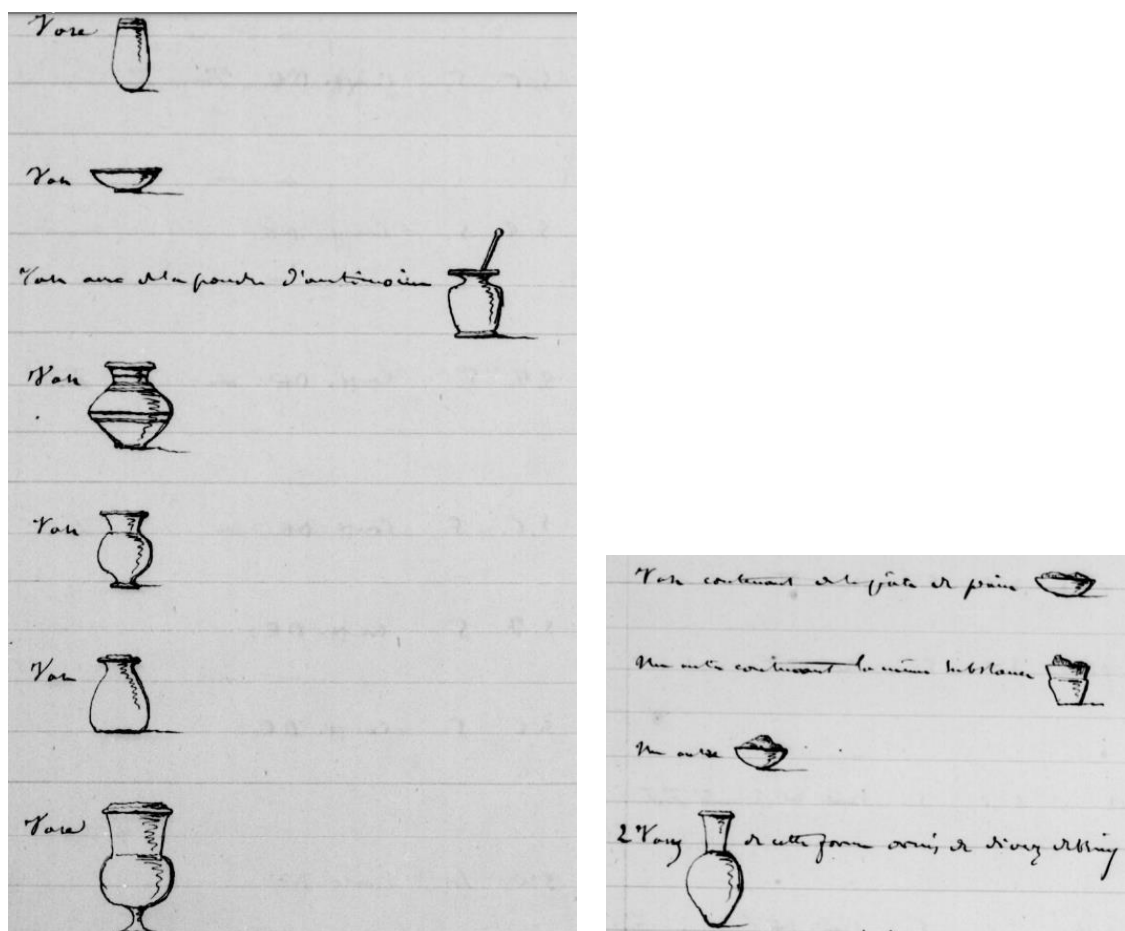 Vase
Vase
Vase avec de la poudre d'antimoine
Vase
Vase
Vase
Vase
Vase contenant de la pâte de pain
Un autre contenant la même substance
Un autre
2 Vases de cette forme ornés de divers dessins